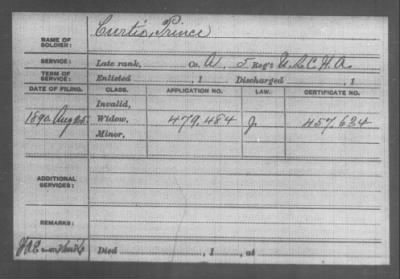 NAME OF SOLDIER: Curtis, Prince
SERVICE: Late rank, Co. A, 5 Reg't U.S.C.H.A.
TERM OF SERVICE: Enlisted , 1 Discharged , 1
DATE OF FILING. CLASS. APPLICATION NO. LAW. CERTIFICATE NO.
Invalid,
1890 Aug 25. Widow, 479,484 J. 457,634
Minor,
ADDITIONAL SERVICES:
REMARKS:
Died , 1 , at